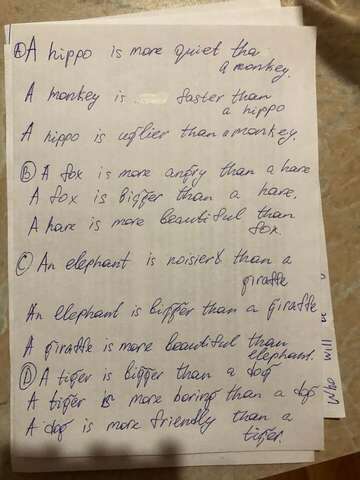 A A hippo is more quiet tha
a monkey.
A monkey is faster than
a hippo
A hippo is uglier than a monkey.
B A fox is more angry than a hare
A fox is bigger than a hare.
A hare is more beautiful than
fox.
C An elephant is noisier than a
giraffe
An elephant is bigger than a giraffe
A giraffe is more beautiful than
elephant.
D A tiger is bigger than a dog
A tiger is more boring than a dog
A dog is more friendly than a
tiger.
Who will